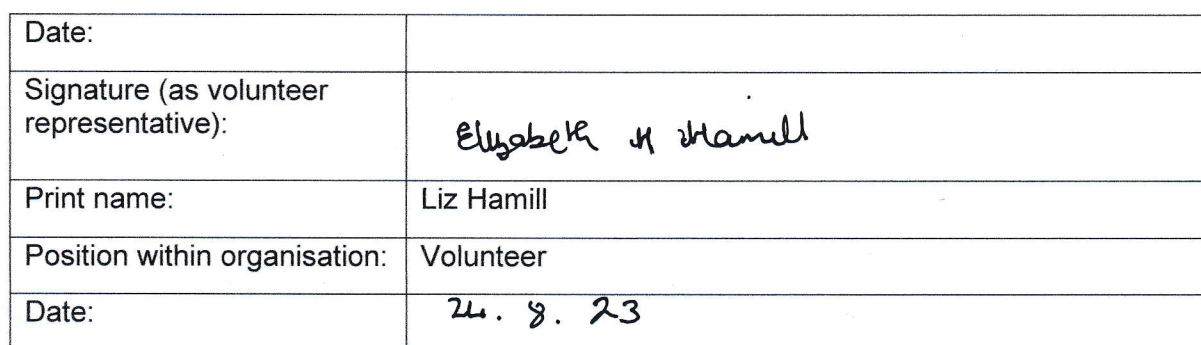 Date:
Signature (as volunteer
representative):
Elizabeth M Hamill
Print name: Liz Hamill
Position within organisation: Volunteer
Date: 24. 8. 23